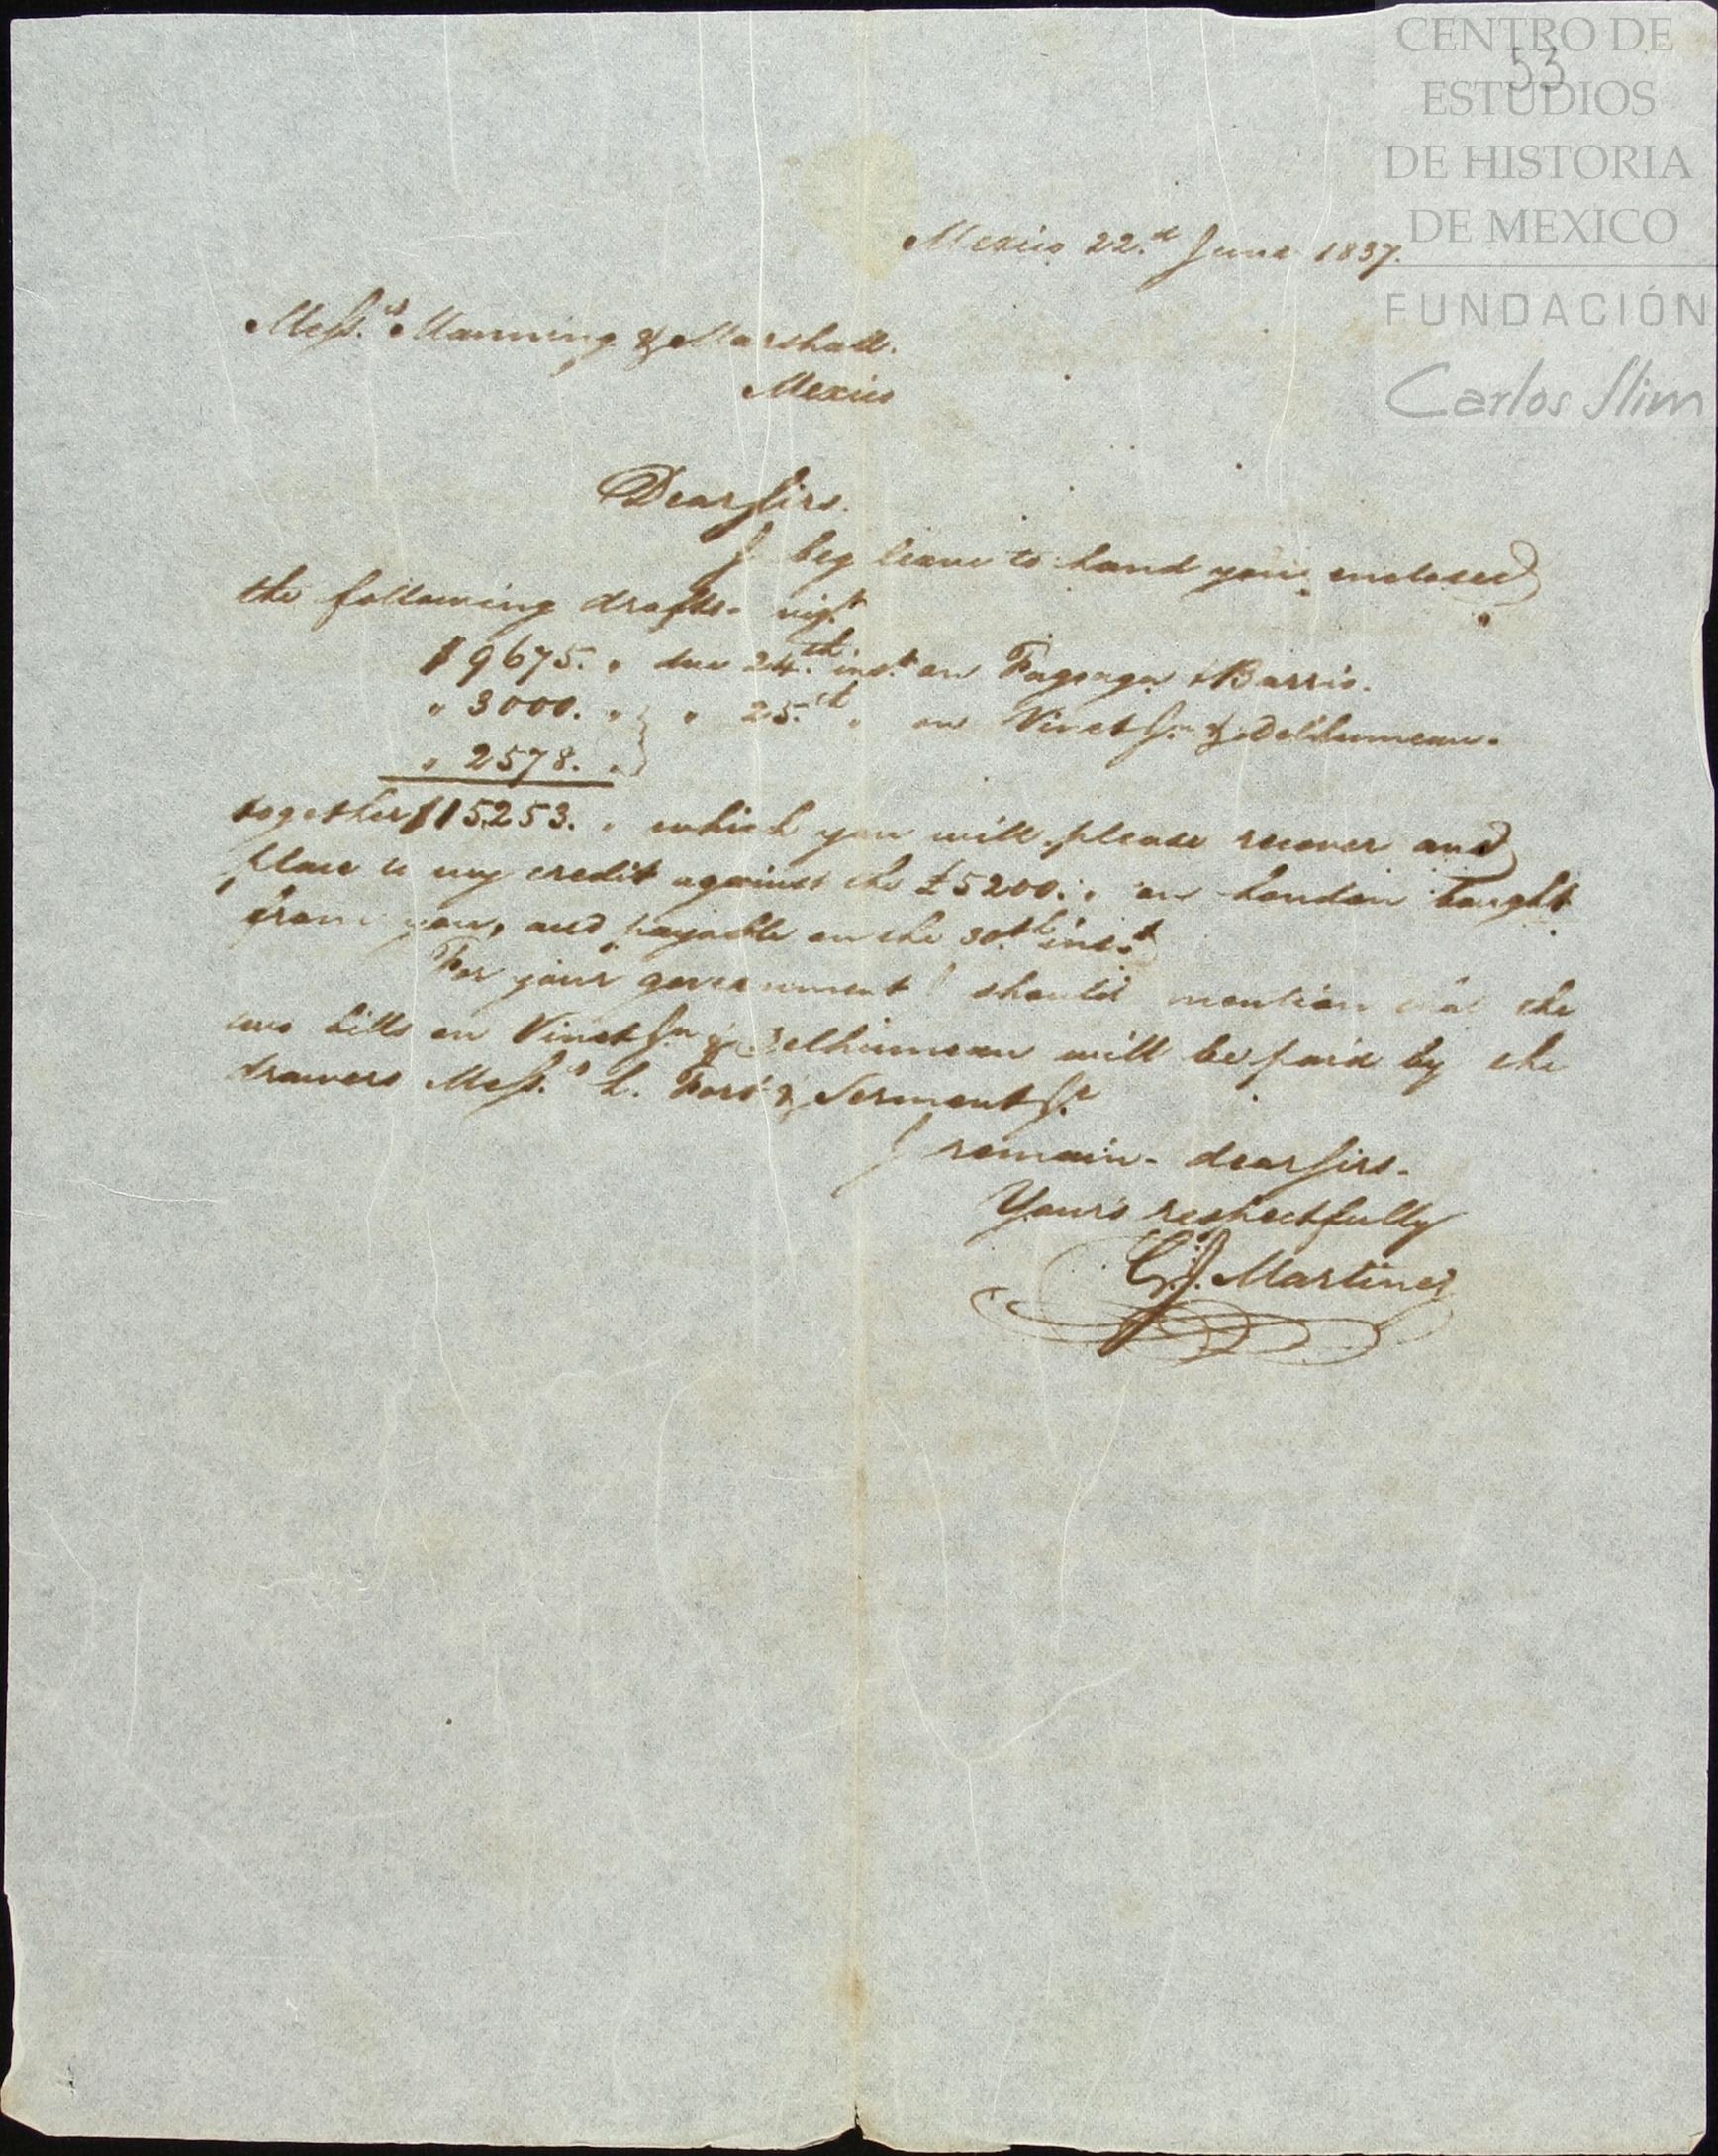 CENTRO DE
53
ESTUDIOS
DE HISTORIA
DE MEXICO
FUNDACIÓN
Carlos Slim
Mexico 22.d June 1837.
Mess.rs Manning & Marshall.
Mexico
Dear Sirs.
I beg leave to hand you enclosed
the following drafts- viz.t
$ 9675. " due 24.th inst on Fagoaga & Barrio.
" 3000. " } " 25.th " on Vinet Jn. & Delhumeau.
" 2578. " }
together $15253. " which you will please recover and
place to my credit against the £5200. " on London bought
from you, and payable on the 30.th inst.
For your government I should mention that the
two bills on Vinet Jn & Delhumeau will be paid by the
drawers Mess.rs L. Fort & Serment
I remain- dear Sirs-
Yours respectfully
G. J. Martinez